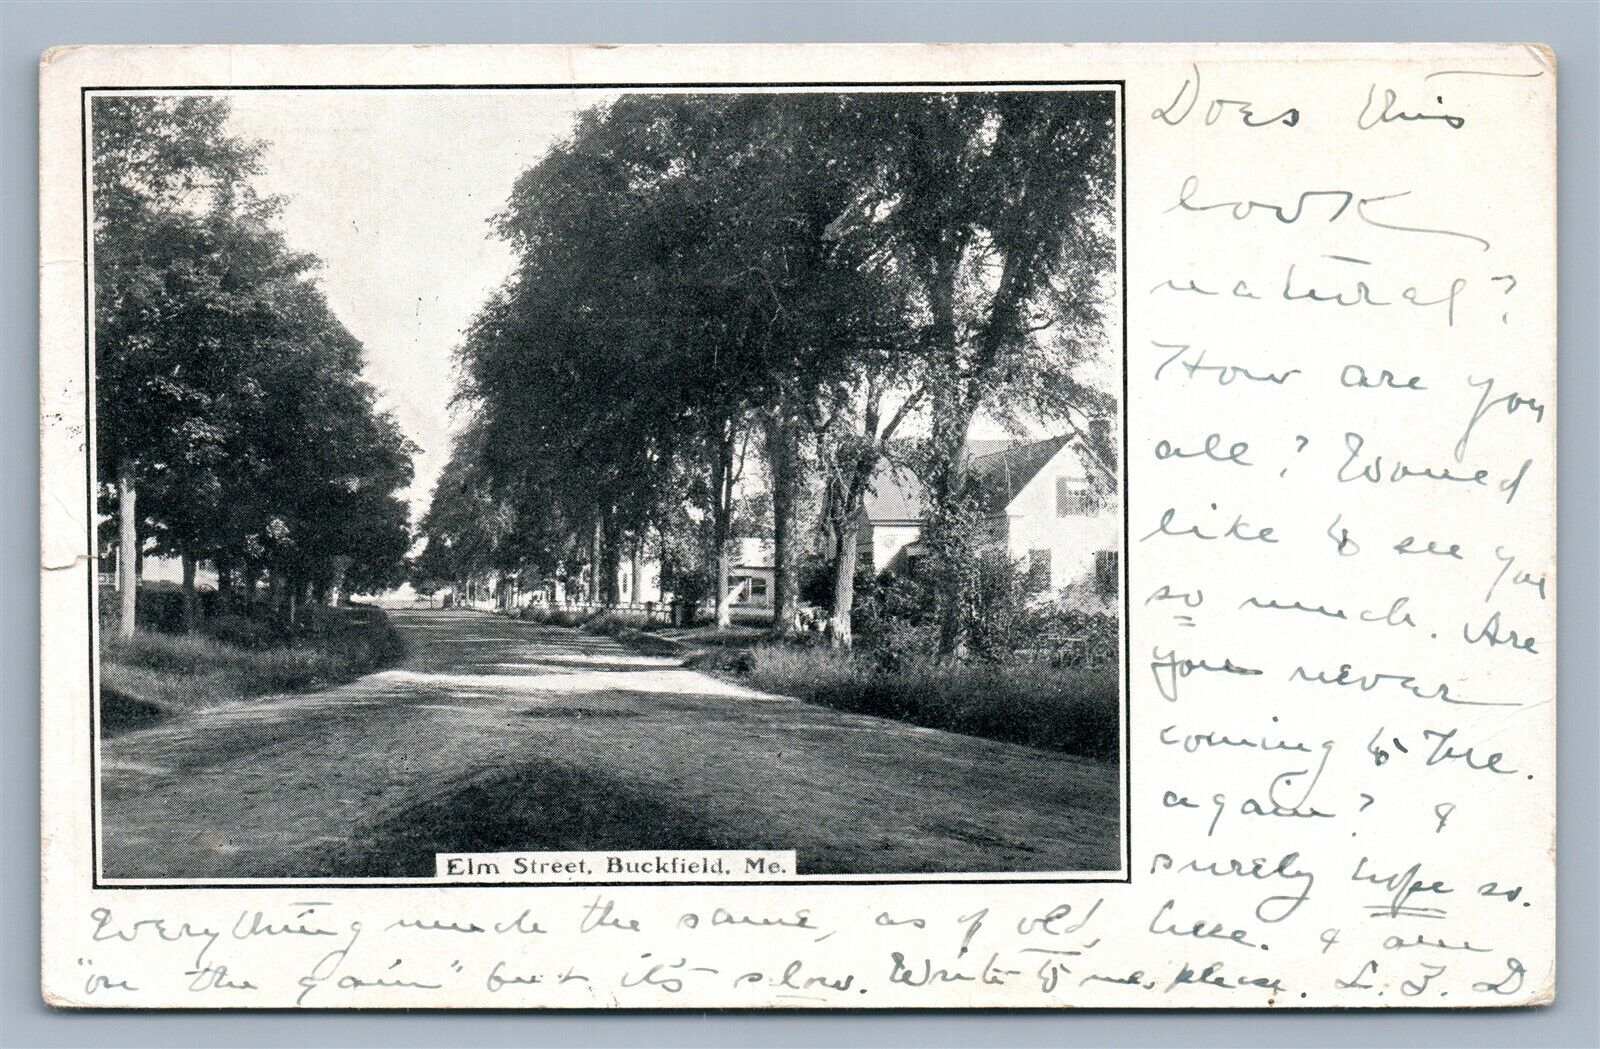 Does this
look
natural?
How are you
all? Would
like to see you
so much. Are
you never
coming to Me.
again? I
surely hope so.
Elm Street, Buckfield, Me.
Everything much the same, as of old, here. I am
"on the gain" but it's slow. Write to me, please. L. F. D.